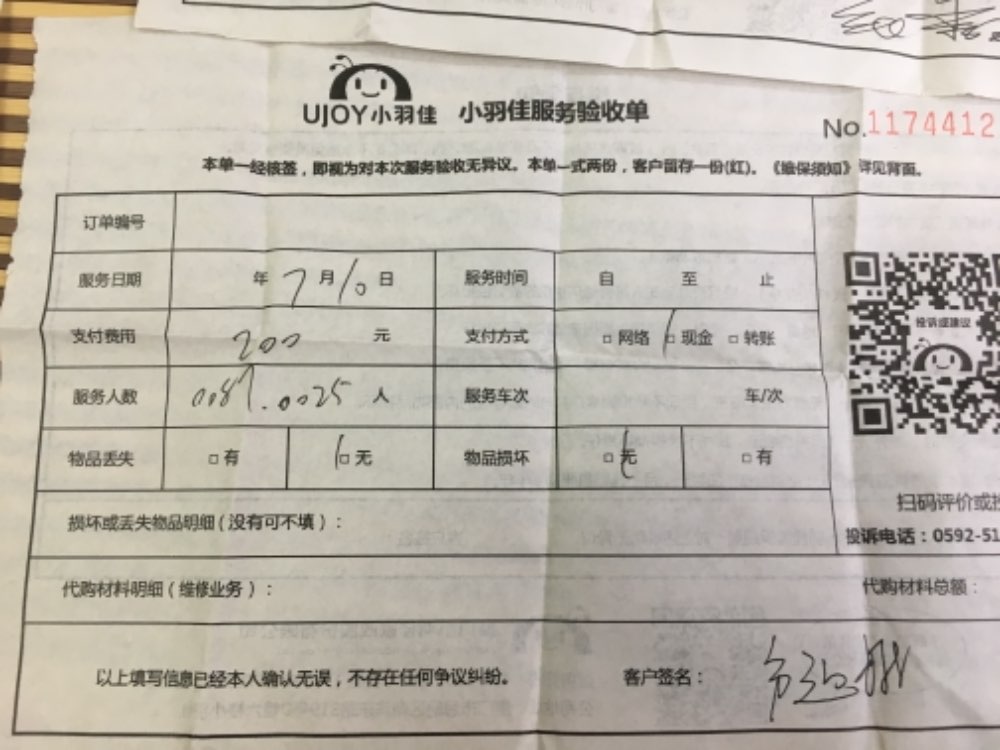 UJOY小羽佳 小羽佳服务验收单
No.1174412
本单一经核签，即视为对本次服务验收无异议。本单一式两份，客户留存一份(红)。《维保须知》详见背面。
订单编号
服务日期 年 7 月 10 日 服务时间 自 至 止
支付费用 200 元 支付方式 □网络 □现金 □转账
投诉或建议
服务人数 0087.0025 人 服务车次 车/次
物品丢失 □有 □无 物品损坏 □无 □有
扫码评价或
损坏或丢失物品明细（没有可不填）：
投诉电话：0592-51
代购材料明细（维修业务）： 代购材料总额：
以上填写信息已经本人确认无误，不存在任何争议纠纷。 客户签名：